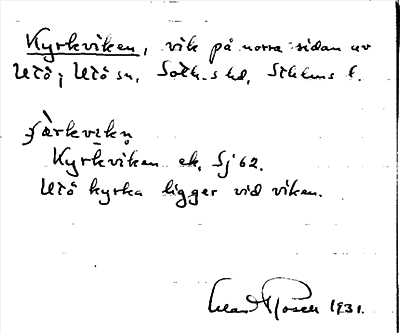 Kyrkviken, vik på norra sidan av
Utö, Utö sn, Soth.s hd, Sthlms l.
Kyrkviken ek. Sj 62.
Utö kyrka ligger vid viken.
1931.